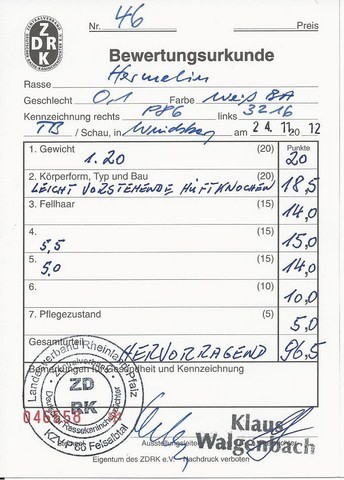 Nr. 46 Preis
ZDRK
Bewertungsurkunde
Rasse Hermelin
Geschlecht 0,1 Farbe Weiß BA
Kennzeichnung rechts P86 links 3216
TB / Schau, in am 24. 11. 20 12
1. Gewicht (20) Punkte
1.20 20
2. Körperform, Typ und Bau (20)
LEICHT VORSTEHENDE HÜFTKNOCHEN 18,5
3. Fellhaar (15) 14,0
4. (15)
5,5 15,0
5. (15)
5,0 14,0
6. (10) 10,0
7. Pflegezustand (5) 5,0
Gesamturteil HERVORRAGEND 96,5
Bemerkungen für Gesundheit und Kennzeichnung
Landesverband Rheinland-Pfalz
ZDRK
KZV P 86 Felsalbtal
Klaus
Walgenbach
Ausstellungsleiter
Eigentum des ZDRK e.V. - Nachdruck verboten